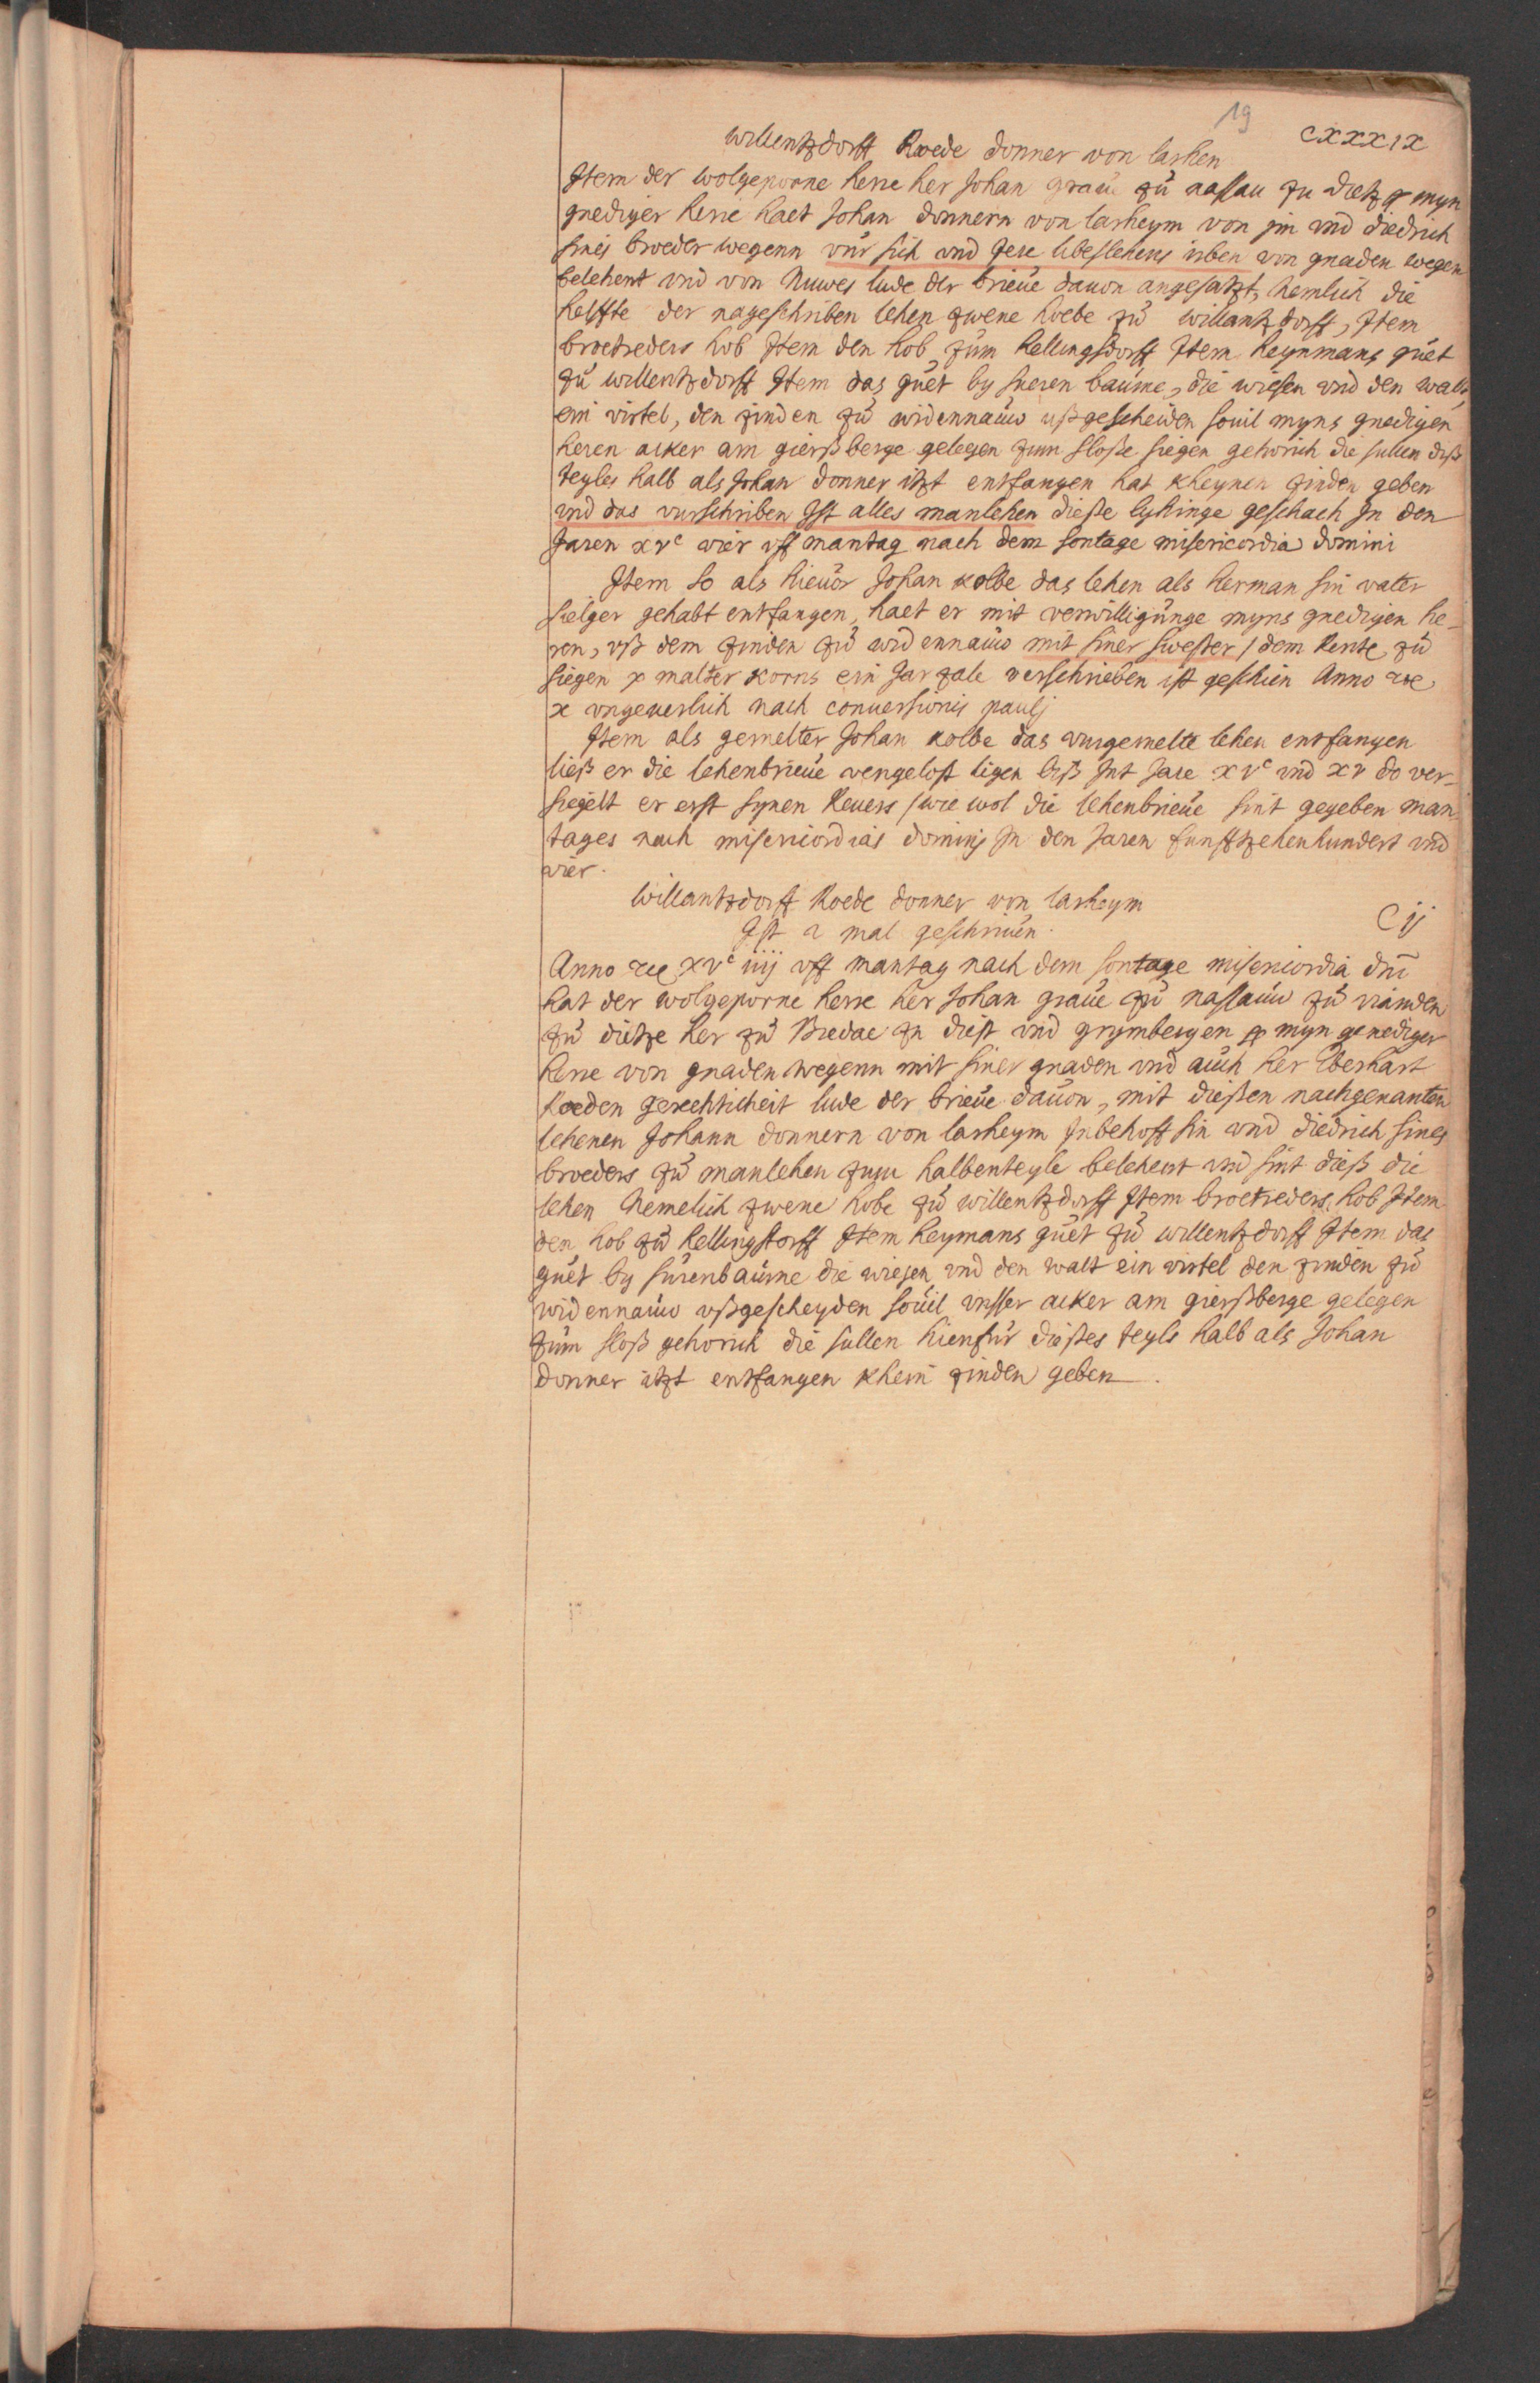 19
CXXXIX
Willentzdorff Roede donner von lashen
Item der wolgeporne herre her Johan graue zů nassau zu dietz ꝛc myn
gnediger herre haet Johan donnern von lasheym von jm vnd diedrich
sines broeder wegenn vur sich vnd Jere libeslehens erben von gnaden wegen
belehent vnd von Nuwes lude der brieue dauon angesatzt, Nemlich die
helffte der nageschriben lehen zwene hoebe zů willantzdorff, Item
broetreders hob Item den hob zům hellingsdorff Item heynmans gůet
zů willentzdorff Item das gůet by sueren baůme, die wiesen vnd den walt,
ein virtel, den zinden zů widennaůw ußgescheiden souil myns gnedigen
heren acker am gierßberge gelegen zum sloße siegen gehorich die sullen diß
teyles halb als Johan donner itzt entfangen hat kheynen zinden geben
vnd das vurschriben Ist alles manlehen dieße lyhinge geschach In den
Jaren xvc vier vff mantag nach dem sontage misericordia domini
Item so als hieuor Johan kolbe das lehen als herman sin vater
sielger gehabt entfangen, haet er mit verwilligůnge myns gnedigen he-
ren, vß dem zinden zů widennaůw mit siner swester / dem Rente, zů
siegen x malter korns ein Jarzale verschrieben ist geschien Anno ꝛc
x vngeuerlich nach conuersionis paulj
Item als gemelter Johan kolbe das vurgemelte lehen entfangen
ließ er die lehenbrieůe vengelost ligen biß Int Jare xvc vnd xv do ver-
siegelt er erst synen Reuers / wie wol die lehenbrieůe sint gegeben man-
tages nach misericordias dominj In den Jaren funfftzehenhundert vnd
vier.
Willantzdorff Roede donner von lasheym
Ist 2 mal geschriuen.
Cij
Anno ꝛc xvc iiij vff mantag nach dem sontage misericordia dni
hat der wolgeporne herre her Johan graůe zů nassaůw zů vianden
zů dietze her zů Bredae zu diest vnd grymbergen ꝛc myn genediger
herre von gnaden wegenn mit siner gnaden vnd aůch her Eberhart
Roeden gerechticheit lude der brieůe daůon, mit dießen nachgenanten
lehenen Johann donnern von lasheym Inbehoff sin vnd diedrich sines
broeders zů manlehen zum halbenteyle belehent vnd sint dieß die
lehen Nemelich zwene hobe zů willentzdorff Item broetreders hob Item
den hob zů hellingstorff Item heymans gůet zů willentzdorff Item das
gůet by sůrenbaůme die wiesen vnd den walt ein virtel den zinden zů
widennaůw vßgescheyden soůil vnsser acker am gierßberge gelegen
zům sloß gehorich die sullen hienfůr dießes teyls halb als Johan
donner itzt entfangen khein zinden geben.